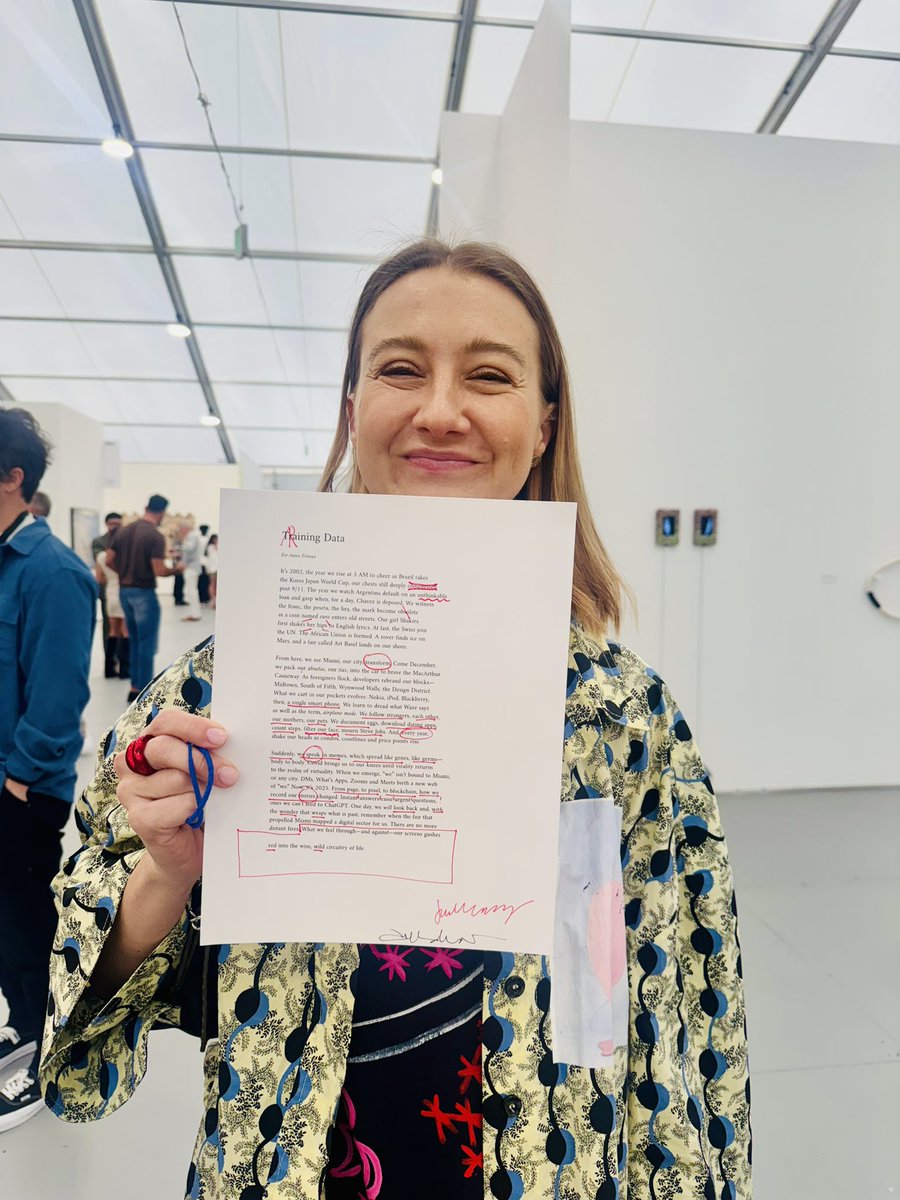 Training Data
For Annie Ernaux
It's 2002, the year we rise at 3 AM to cheer as Brazil takes
the Korea Japan World Cup, our chests still deeply
post 9/11. The year we watch Argentina default on an unthinkable
loan and gasp when, for a day, Chávez is deposed. We witness
the franc, the peseta, the lira, the mark become obsolete
as a coin named euro enters old streets. Our girl Shakira
first shakes her hips to English lyrics. At last, the Swiss join
the UN. The African Union is formed. A rover finds ice on
Mars, and a fair called Art Basel lands on our shore.
From here, we see Miami, our city, transform. Come December,
we pack our abuelas, our tías, into the car to brave the MacArthur
Causeway. As foreigners flock, developers rebrand our blocks—
Midtown, South of Fifth, Wynwood Walls, the Design District
What we cart in our pockets evolves: Nokia, iPod, Blackberry,
then, a single smart phone. We learn to dread what Waze says
as well as the term, airplane mode. We follow strangers, each other,
our mothers, our pets. We document eggs, download dating apps,
count steps, filter our face, mourn Steve Jobs. And, every year,
shake our heads as condos, coastlines and price points rise.
Suddenly, we speak in memes, which spread like genes, like germs—
body to body. Covid brings us to our knees until virality returns
to the realm of virtuality. When we emerge, "we" isn't bound to Miami,
or any city. DMs, What's Apps, Zooms and Meets birth a new web
of "we" Now, it's 2025. From page, to pixel, to blockchain, how we
record our stories changed. Instant answers raise urgent questions,
ones we can't feed to ChatGPT. One day, we will look back and, with
the wonder that wraps what is past, remember when the fair that
propelled Miami mapped a digital sector for us. There are no more
distant fires. What we feel through—and against—our screens gushes
red into the wise, wild circuitry of life.